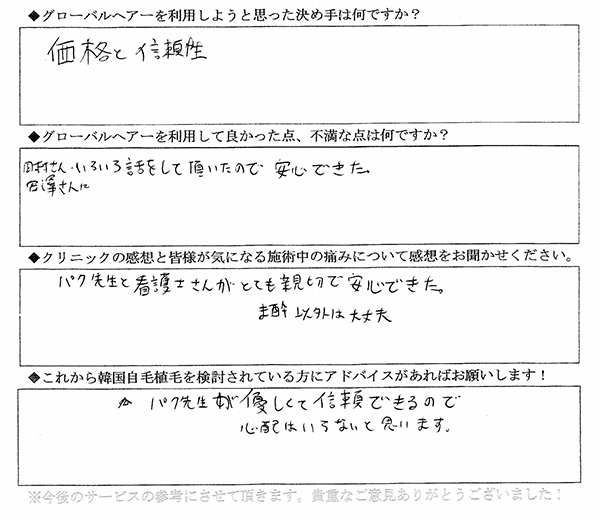 ◆グローバルヘアーを利用しようと思った決め手は何ですか？
価格と信頼性
◆グローバルヘアーを利用して良かった点、不満な点は何ですか？
田村さん・いろいろ話をして頂いたので 安心できた。
宮澤さんに
◆クリニックの感想と皆様が気になる施術中の痛みについて感想をお聞かせください。
パク先生と看護士さんがとても親切で安心できた。
ま酔以外は大丈夫
◆これから韓国自毛植毛を検討されている方にアドバイスがあればお願いします！
パク先生が優しくて信頼できるので
心配はいらないと思います。
※今後のサービスの参考にさせて頂きます。貴重なご意見ありがとうございました！